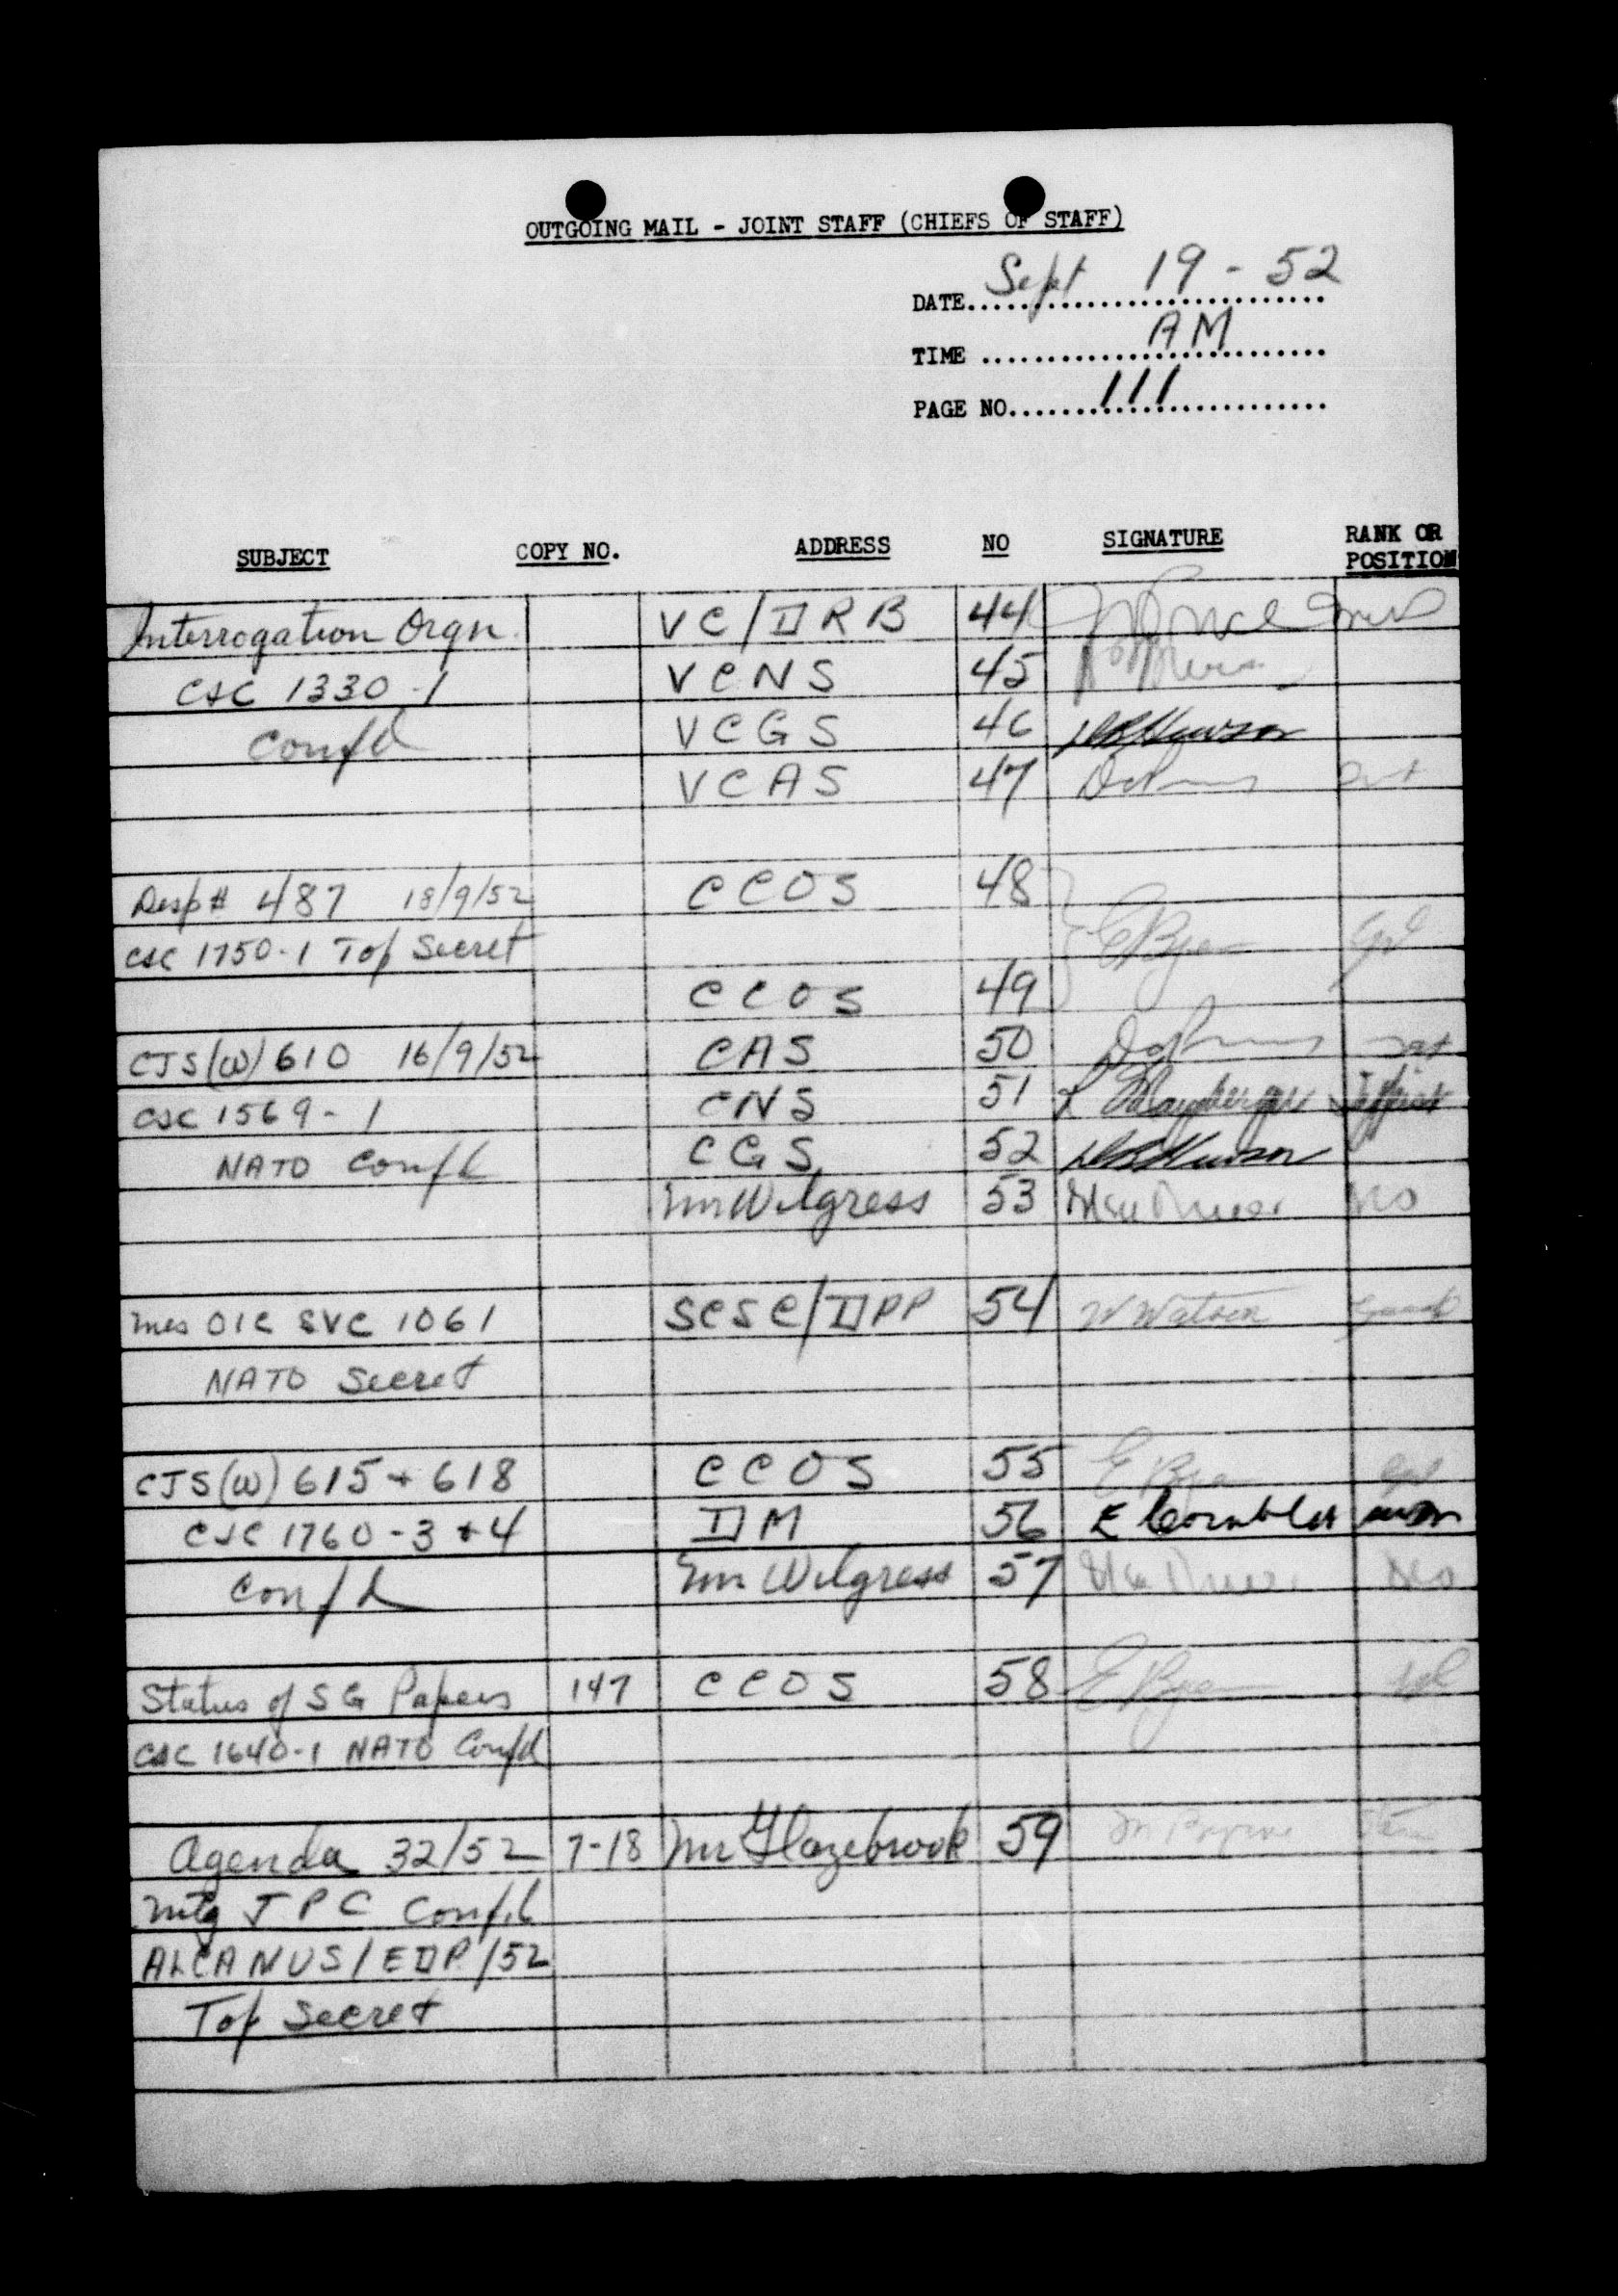 OUTGOING MAIL - JOINT STAFF (CHIEFS OF STAFF)
DATE Sept 19 - 52
TIME AM
PAGE NO. 111
SUBJECT COPY NO. ADDRESS NO SIGNATURE RANK OR POSITION
Interrogation Orgn. VC/DRB 44
CSC 1330-1 VCNS 45
Confd VCGS 46
VCAS 47
Desp # 487 18/9/52 CCOS 48
CSC 1750-1 Top Secret
CCOS 49
CJS(W) 610 16/9/52 CAS 50
CSC 1569-1 CNS 51
NATO Confd CGS 52
Mr Wilgress 53
Mes OIC SVC 1061 SCSC/DPP 54 W Watson
NATO Secret
CJS(W) 615 + 618 CCOS 55
CSC 1760-3 + 4 DM 56 E
Confd Mr Wilgress 57
Status of SG Papers 147 CCOS 58
CSC 1640-1 NATO Confd
Agenda 32/52 7-18 Mr Glazebrook 59
Mtg JPC Confd
ALCANUS/EDP/52
Top Secret